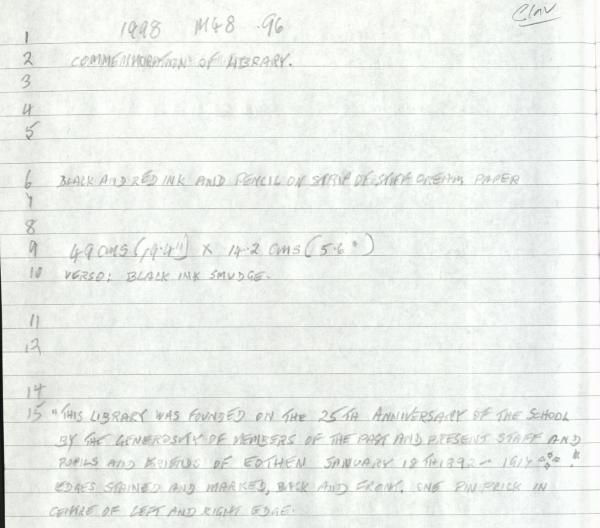 1998 M48 .96
1
2 COMMEMORATION OF LIBRARY.
3
4
5
6 BLACK AND RED INK AND PENCIL ON STRIP OF STIFF CREAM PAPER
7
8
9 49 CMS (19.4") X 14.2 CMS (5.6")
10 VERSO: BLACK INK SMUDGE.
11
12
14
15 "THIS LIBRARY WAS FOUNDED ON THE 25TH ANNIVERSARY OF THE SCHOOL
BY THE GENEROSITY OF MEMBERS OF THE PAST AND PRESENT STAFF AND
PUPILS AND FRIENDS OF EOTHEN JANUARY 18TH 1892 - 1917 "
EDGES STAINED AND MARKED, BACK AND FRONT. ONE PIN PRICK IN
CENTRE OF LEFT AND RIGHT EDGE.